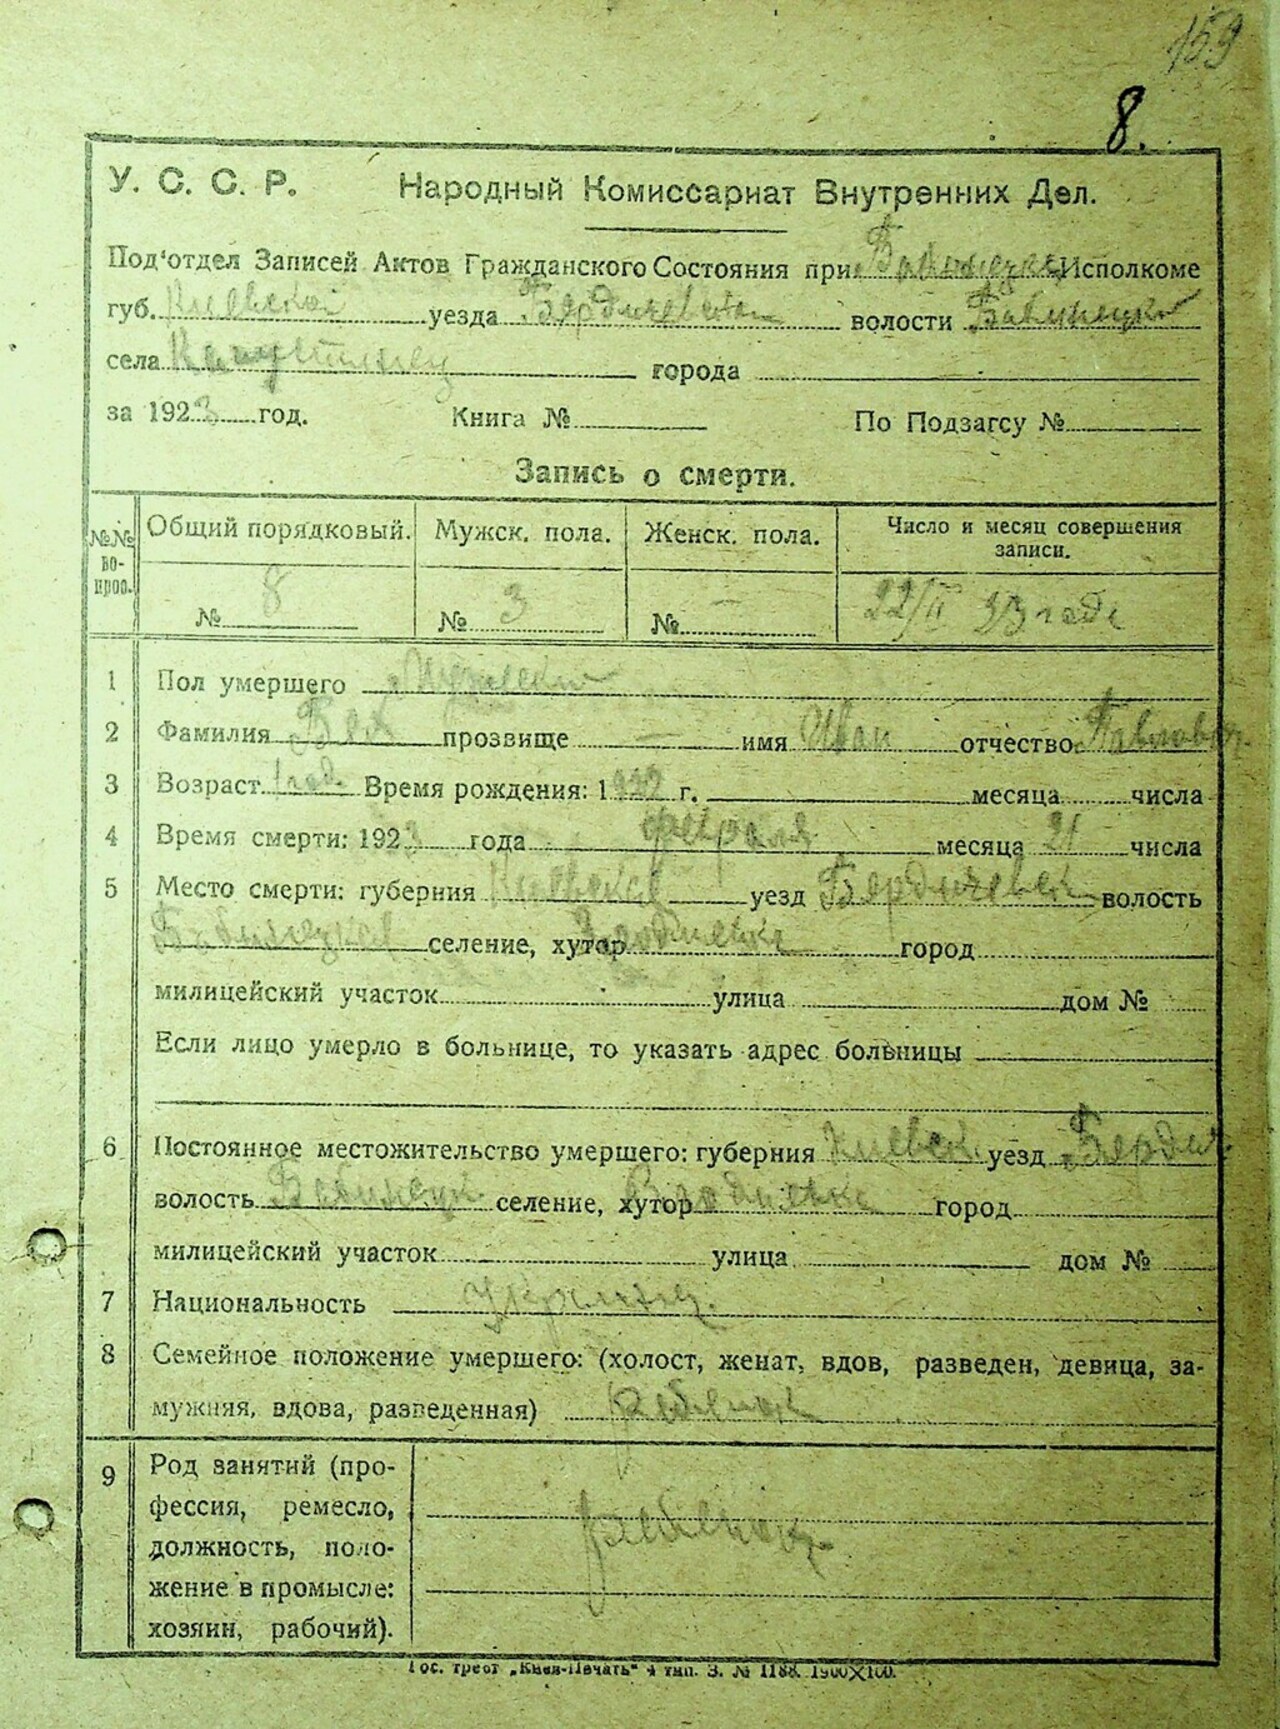 159
8.
У. С. С. Р. Народный Комиссариат Внутренних Дел.
Под'отдел Записей Актов Гражданского Состояния при Исполкоме
губ. Киевской уезда Бердичевск волости
села города
за 1923 год. Книга № По Подзагсу №
Запись о смерти.
№№ во-прос. Общий порядковый. Мужск. пола. Женск. пола. Число и месяц совершения записи.
№ 8 № 3 № — 22/II 23 года
1 Пол умершего Мужской
2 Фамилия Бех прозвище — имя Иван отчество Павлович
3 Возраст 1 год. Время рождения: 1922 г. месяца числа
4 Время смерти: 1923 года февраля месяца 21 числа
5 Место смерти: губерния Киевская уезд Бердичевск волость
селение, хутор город
милицейский участок улица дом №
Если лицо умерло в больнице, то указать адрес больницы
6 Постоянное местожительство умершего: губерния Киевск уезд Бердич.
волость селение, хутор город
милицейский участок улица дом №
7 Национальность украинец.
8 Семейное положение умершего: (холост, женат, вдов, разведен, девица, за-
мужняя, вдова, разведенная) ребенок
9 Род занятий (про-
фессия, ремесло,
должность, поло-
жение в промысле:
хозяин, рабочий).
ребенок
Гос. трест „Киев-Печать“ 4 тип. З. № 1188. 1900X100.